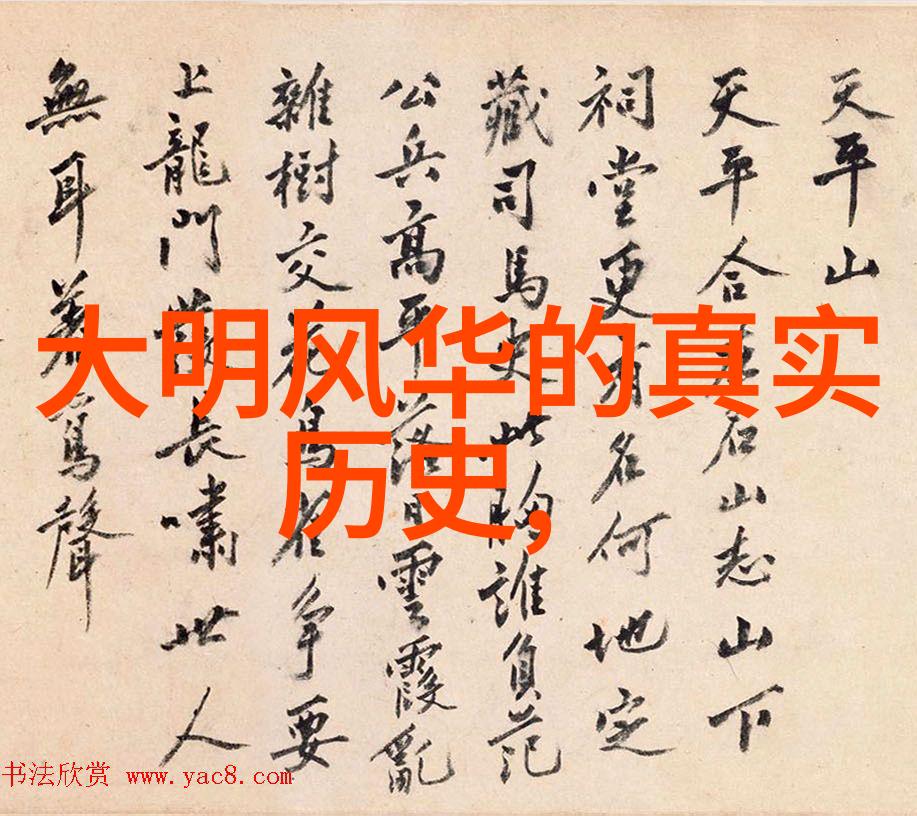 天平山
天平合名山志山下
祠堂更有名何地定
藏司馬史此胸誰負范
公兵高平落日雲霞亂
雜樹交花鳥争要
上龍門發長嘯世人
無耳着聲
大明风华的真实
历史,
书法欣赏 www.yac8.com